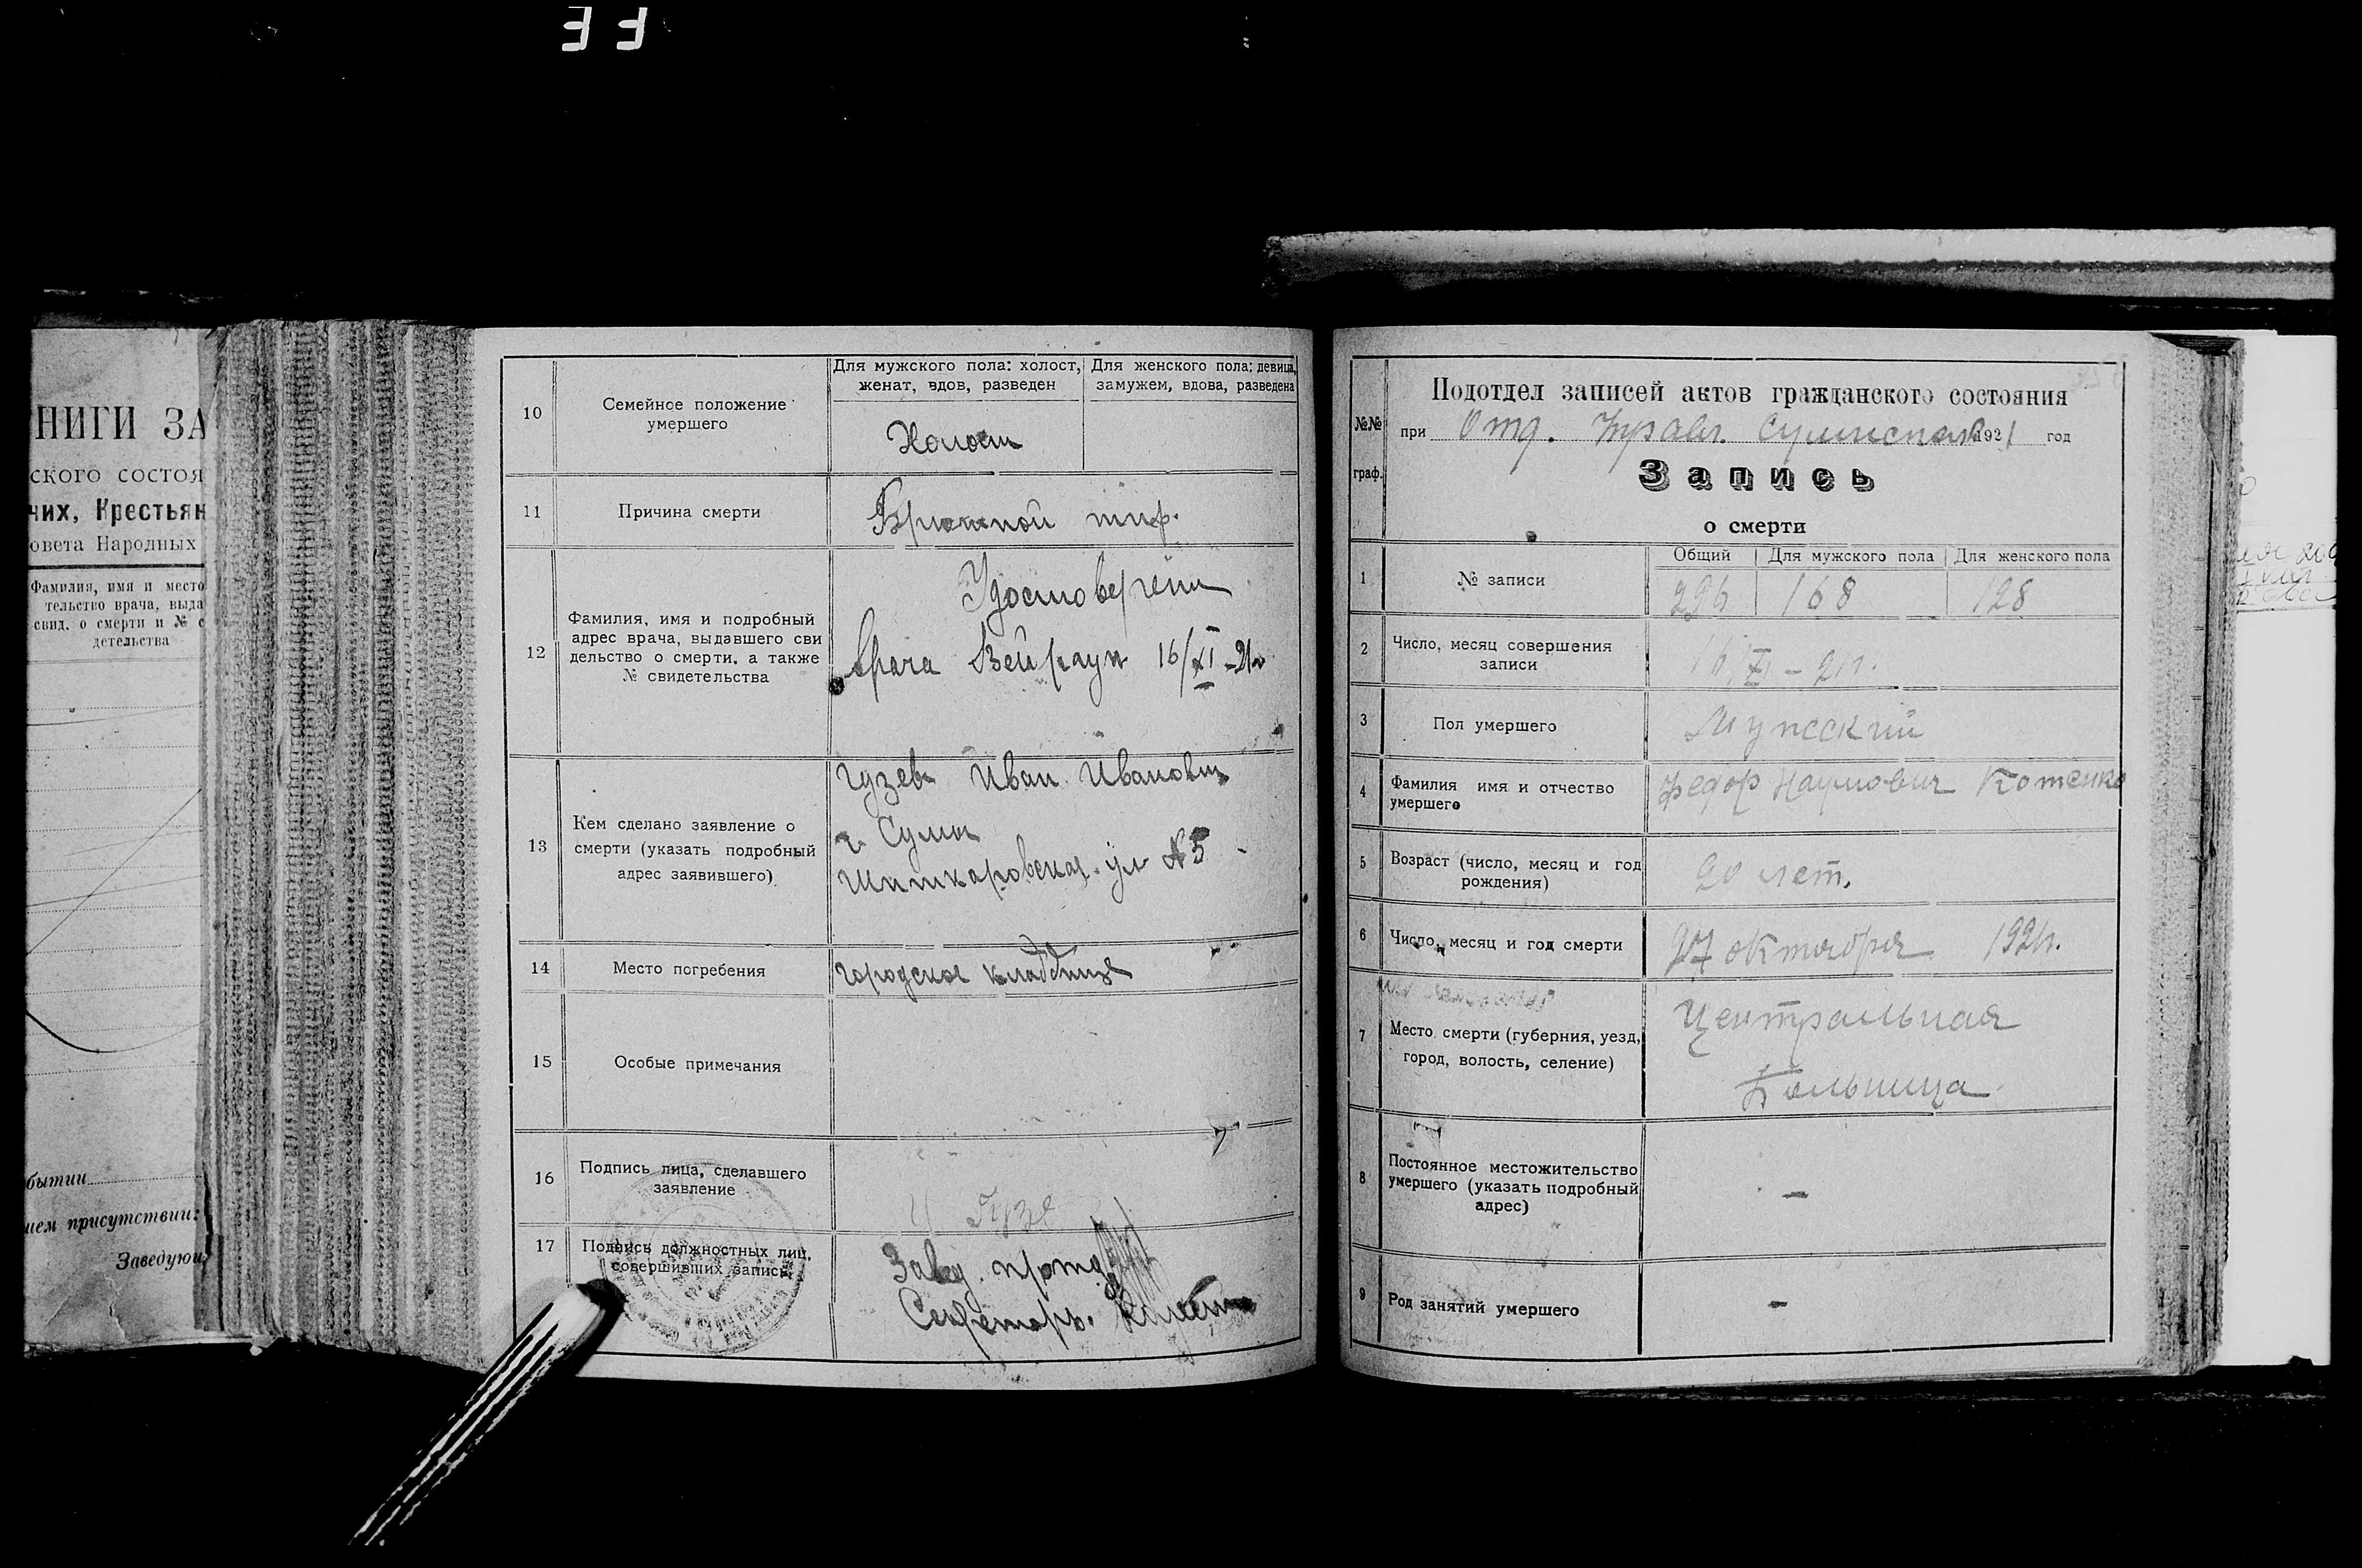 FF
НИГИ ЗА
ского состоя
чих, Крестьян
овета Народных
Фамилия, имя и место
тельство врача, выда
свид. о смерти и № с
детельства
бытии
ием присутствии:
Заведующ
10
Семейное положение
умершего
Для мужского пола: холост,
женат, вдов, разведен
Для женского пола: девица,
замужем, вдова, разведена
Холост
11
Причина смерти
Брюшной тиф.
12
Фамилия, имя и подробный
адрес врача, выдавшего сви
дельство о смерти, а также
№ свидетельства
Удостоверение
Врача Вейраух 16/XI-21г
13
Кем сделано заявление о
смерти (указать подробный
адрес заявившего)
Гузев Иван Иванович
г. Сумы
ул № 5
14
Место погребения
городское кладбище
15
Особые примечания
16
Подпись лица, сделавшего
заявление
И Гузе
17
Подпись должностных лиц,
совершивших запись
Завед.
Секретарь.
№№
граф.
Подотдел записей актов гражданского состояния
при Отд. Управл. 1921 год
Запись
о смерти
1
№ записи
Общий
Для мужского пола
Для женского пола
296
168
128
2
Число, месяц совершения
записи
16/XI-21г.
3
Пол умершего
Мужской
4
Фамилия имя и отчество
умершего
Федор Наумович Котенко
5
Возраст (число, месяц и год
рождения)
20 лет.
6
Число, месяц и год смерти
27 октября 1921г.
7
Место смерти (губерния, уезд,
город, волость, селение)
Центральная
Больница
8
Постоянное местожительство
умершего (указать подробный
адрес)
–
9
Род занятий умершего
–